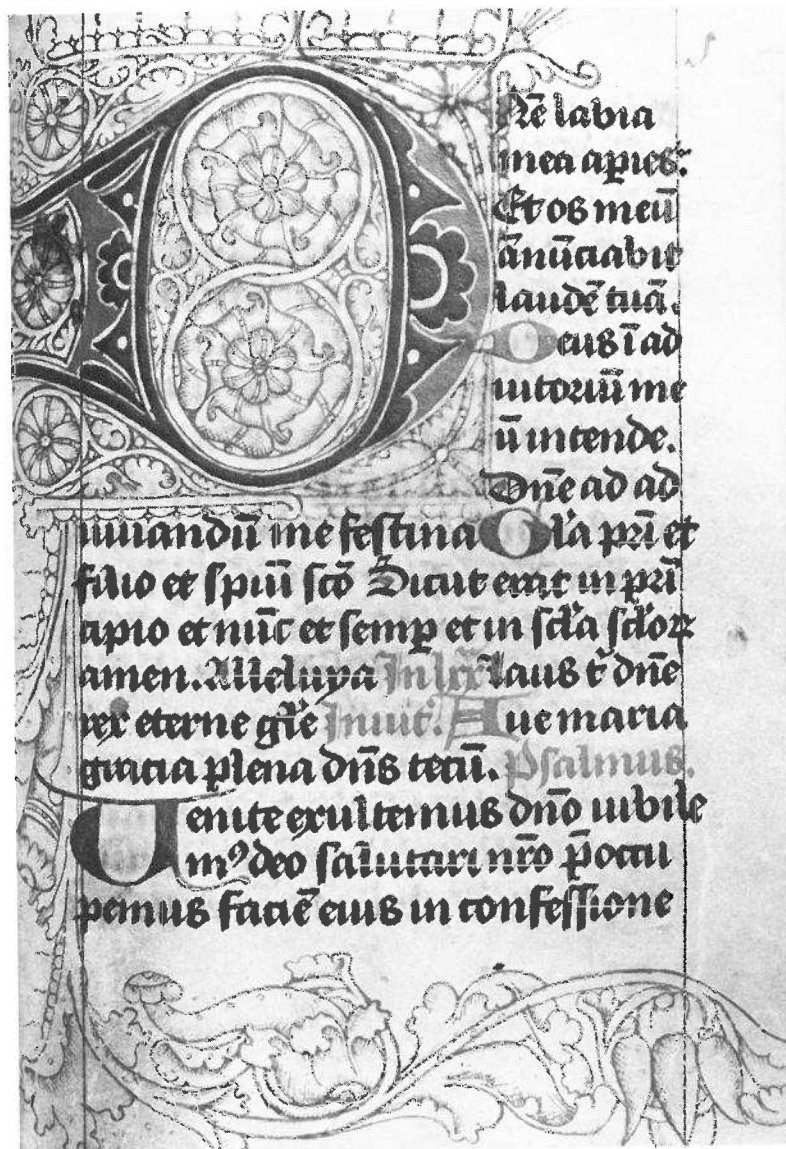 Dñe labia
mea apies:
Et os meū
ānūciabit
laudē tuā.
Deus ī ad
iutoriū me
ū intende.
Dñe ad ad
iuuandū me festina Gla pri et
filio et spiui sco Sicut erat in pri
cipio et nūc et semp et in scla sclor
amen. Alleluya In lxx Laus t dñe
rex eterne glie Inuit. Aue maria
gracia plena dñs tecū. Psalmus.
Uenite exultemus dño iubile
mꝰ deo salutari nro poccu
pemus faciē eius in confessione